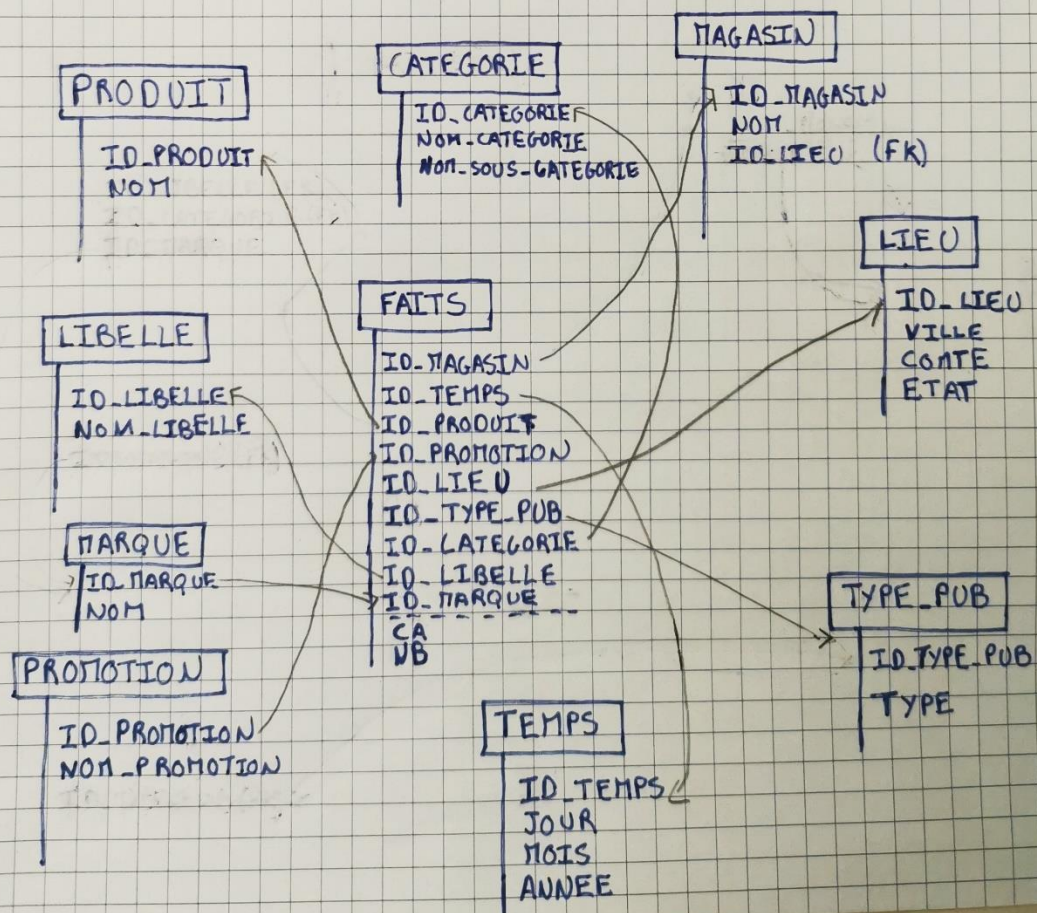 PRODUIT
ID_PRODUIT
NOM
CATEGORIE
ID_CATEGORIE
NOM_CATEGORIE
NOM_SOUS_CATEGORIE
MAGASIN
ID_MAGASIN
NOM
ID_LIEU (FK)
LIEU
ID_LIEU
VILLE
COMTE
ETAT
LIBELLE
ID_LIBELLE
NOM_LIBELLE
FAITS
ID_MAGASIN
ID_TEMPS
ID_PRODUIT
ID_PROMOTION
ID_LIEU
ID_TYPE_PUB
ID_CATEGORIE
ID_LIBELLE
ID_MARQUE
CA
NB
MARQUE
ID_MARQUE
NOM
PROMOTION
ID_PROMOTION
NOM_PROMOTION
TYPE_PUB
ID_TYPE_PUB
TYPE
TEMPS
ID_TEMPS
JOUR
MOIS
ANNEE